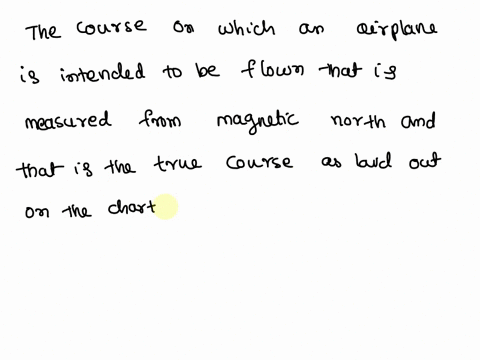 The course on which an airplane
is intended to be flown that is
measured from magnetic north and
that is the true course as laid out
on the chart